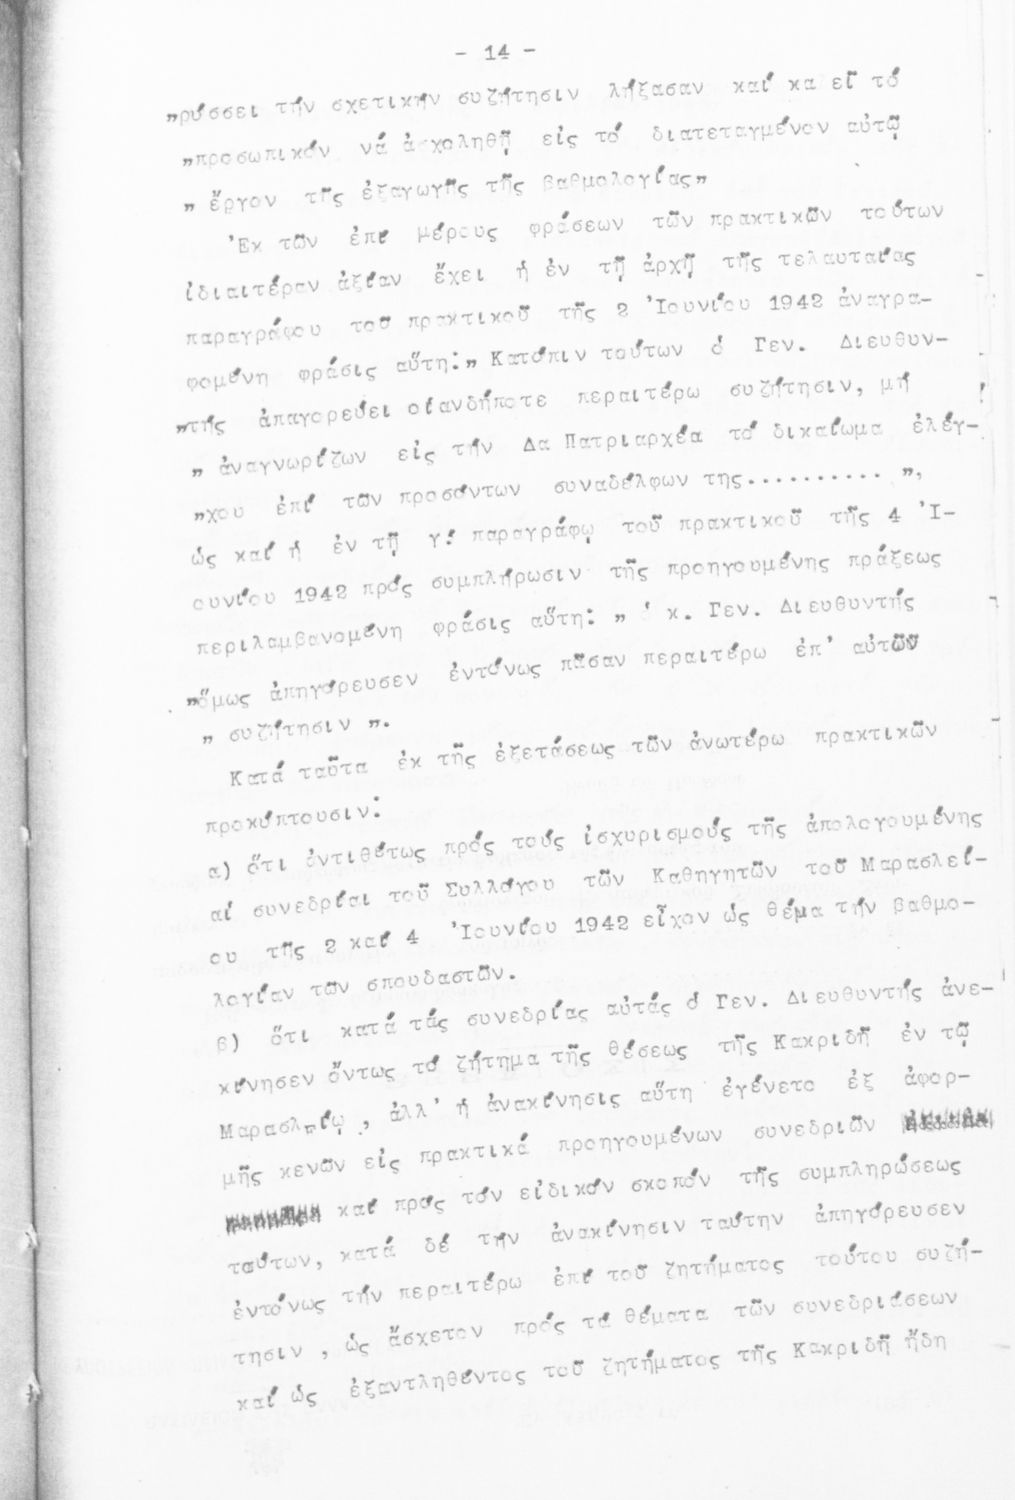 - 14 -
„ρύσσει τήν σχετικήν συζήτησιν λήξασαν καί κα εῖ τό
„προσωπικόν νά ἀσχοληθῇ εἰς τό διατεταγμένον αὐτῷ
„ ἔργον τῆς ἐξαγωγῆς τῆς βαθμολογίας„
Ἐκ τῶν ἐπί μέρους φράσεων τῶν πρακτικῶν τούτων
ἰδιαιτέραν ἀξίαν ἔχει ἡ ἐν τῇ ἀρχῇ τῆς τελαυταίας
παραγράφου τοῦ πρακτικοῦ τῆς 2 Ἰουνίου 1942 ἀναγρα-
φομένη φράσις αὕτη:„ Κατόπιν τούτων ὁ Γεν. Διευθυν-
„τής ἀπαγορεύει οἱανδήποτε περαιτέρω συζήτησιν, μή
„ ἀναγνωρίζων εἰς τήν Δα Πατριαρχέα τό δικαίωμα ἐλέγ-
„χου ἐπί τῶν προσόντων συναδέλφων της.......... „,
ὡς καί ἡ ἐν τῇ γ: παραγράφῳ τοῦ πρακτικοῦ τῆς 4 Ἰ-
ουνίου 1942 πρός συμπλήρωσιν τῆς προηγουμένης πράξεως
περιλαμβανομένη φράσις αὕτη: „ ὁ κ. Γεν. Διευθυντής
„ὅμως ἀπηγόρευσεν ἐντόνως πᾶσαν περαιτέρω ἐπ' αὐτῶν
„ συζήτησιν „.
Κατά ταῦτα ἐκ τῆς ἐξετάσεως τῶν ἀνωτέρω πρακτικῶν
προκύπτουσιν:
α) ὅτι ἀντιθέτως πρός τούς ἰσχυρισμούς τῆς ἀπολογουμένης
αἱ συνεδρίαι τοῦ Συλλόγου τῶν Καθηγητῶν τοῦ Μαρασλεί-
ου τῆς 2 καί 4 Ἰουνίου 1942 εἶχον ὡς θέμα τήν βαθμο-
λογίαν τῶν σπουδαστῶν.
β) ὅτι κατά τάς συνεδρίας αὐτάς ὁ Γεν. Διευθυντής ἀνε-
κίνησεν ὄντως τό ζήτημα τῆς θέσεως τῆς Κακριδῆ ἐν τῷ
Μαρασλείῳ, ἀλλ' ἡ ἀνακίνησις αὕτη ἐγένετο ἐξ ἀφορ-
μῆς κενῶν εἰς πρακτικά προηγουμένων συνεδριῶν
καί πρός τόν εἰδικόν σκοπόν τῆς συμπληρώσεως
τούτων, κατά δέ τήν ἀνακίνησιν ταύτην ἀπηγόρευσεν
ἐντόνως τήν περαιτέρω ἐπί τοῦ ζητήματος τούτου συζή-
τησιν , ὡς ἄσχετον πρός τά θέματα τῶν συνεδριάσεων
καί ὡς ἐξαντληθέντος τοῦ ζητήματος τῆς Κακριδῆ ἤδη